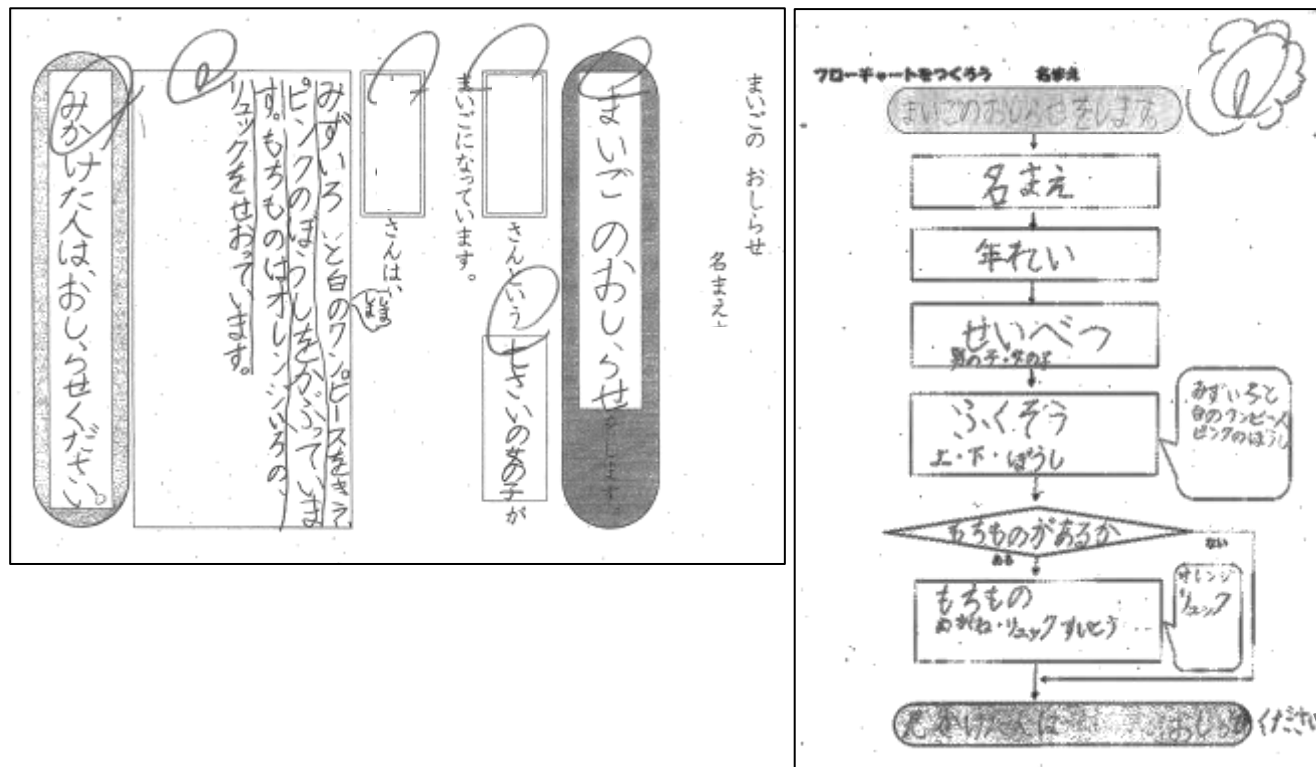 まいごの おしらせ
名まえ
まいごのおしらせをします。
さんという 七さいの女の子が
まいごになっています。
さんは、
みずいろ と白のワンピースをきて
しま
ピンクのぼうしをかぶっていま
す。もちものはオレンジいろの、
リュックをせおっています。
みかけた人は、おしらせください。
フローチャートをつくろう 名まえ
まいごのおしらせをします
名まえ
年れい
せいべつ
男の子・女の子
ふくそう
上・下・ぼうし
みずいろと
白のワンピース
ピンクのぼうし
もちものがあるか
ない
ある
もちもの
めがね・リュック すいとう
オレンジ
リュック
見かけた人は おしらせください